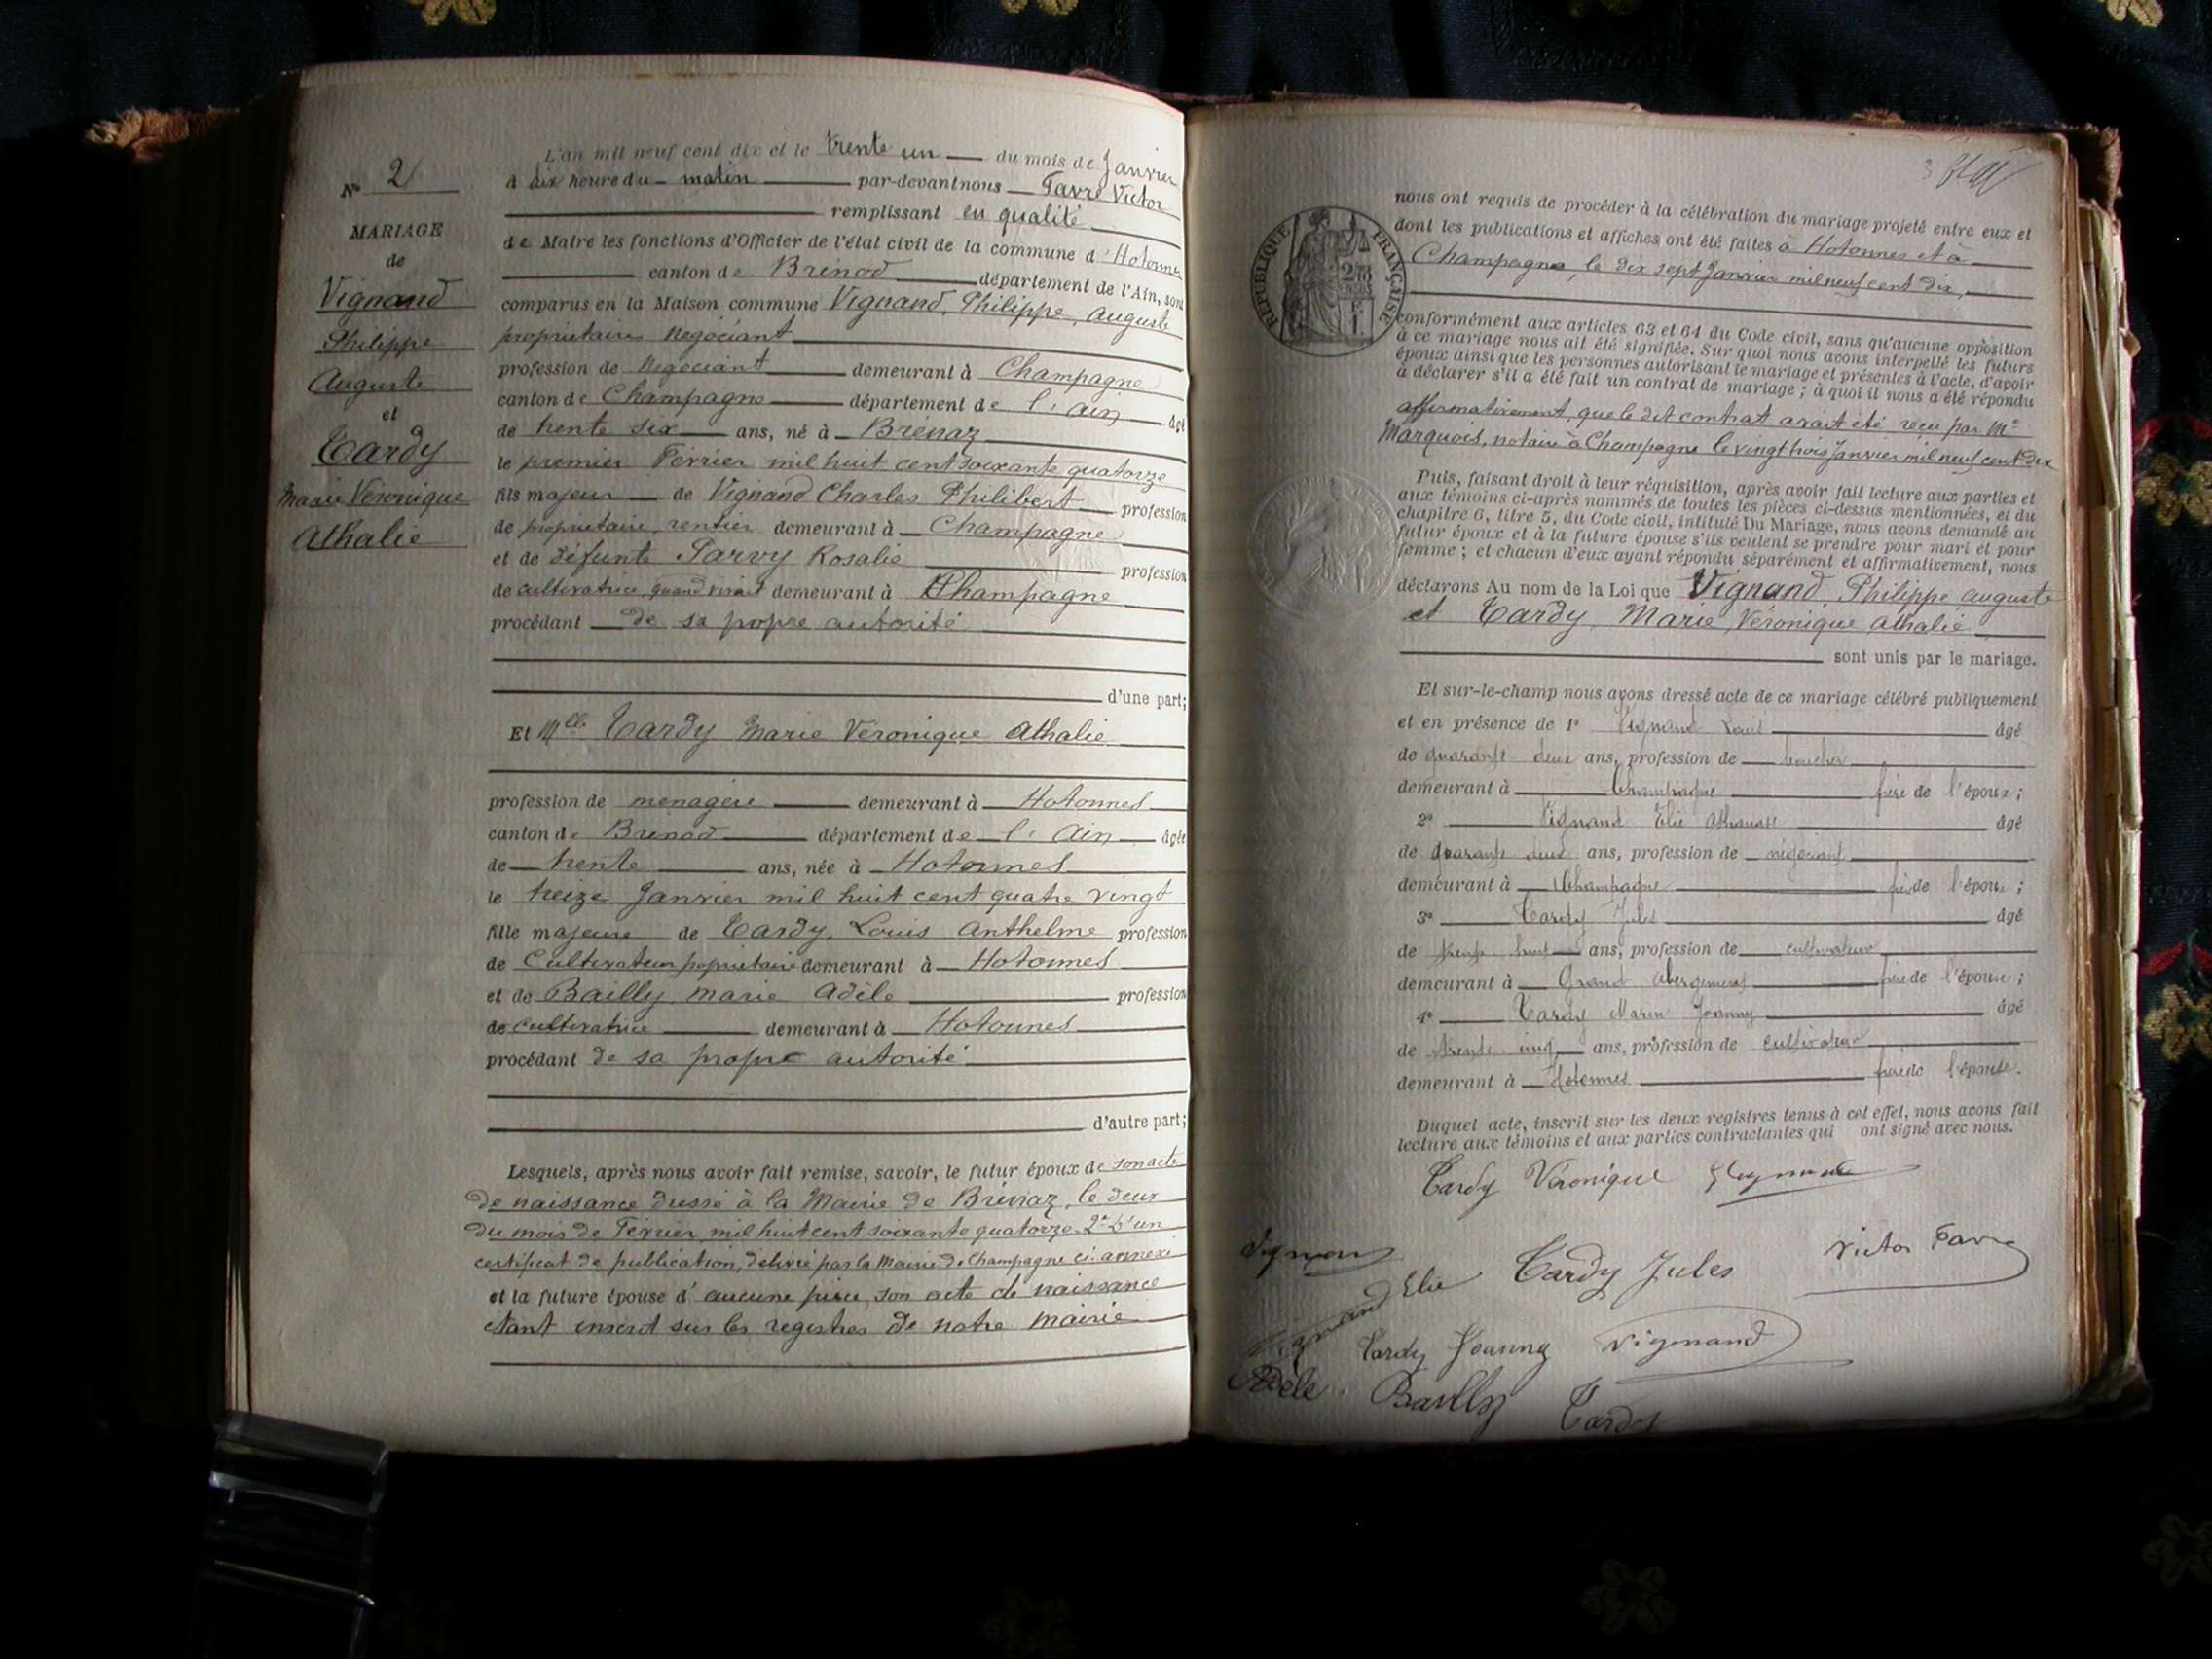 N° 2
MARIAGE
de
Vignand
Philippe
Auguste
et
Tardy
Marie Véronique
Athalie
L'an mil neuf cent dix et le trente un du mois de Janvier
à dix heure du matin par-devant nous Favre Victor
remplissant en qualité
de Maire les fonctions d'Officier de l'état civil de la commune d'Hotonnes
canton de Brénod département de l'Ain, sont
comparus en la Maison commune Vignand, Philippe, Auguste
propriétaire négociant
profession de négociant demeurant à Champagne
canton de Champagne département de l'Ain âgé
de trente six ans, né à Brénaz
le premier Février mil huit cent soixante quatorze
fils majeur de Vignand Charles Philibert profession
de propriétaire rentier demeurant à Champagne
et de défunte Parvy Rosalie profession
de cultivatrice, quand vivait demeurant à Champagne
procédant de sa propre autorité
d'une part;
Et Mlle Tardy Marie Véronique Athalie
profession de ménagère demeurant à Hotonnes
canton de Brénod département de l'Ain âgée
de trente ans, née à Hotonnes
le treize Janvier mil huit cent quatre vingt
fille majeure de Tardy, Louis Anthelme profession
de Cultivateur propriétaire demeurant à Hotonnes
et de Bailly Marie Adèle profession
de cultivatrice demeurant à Hotonnes
procédant de sa propre autorité
d'autre part;
Lesquels, après nous avoir fait remise, savoir, le futur époux de son acte
de naissance dressé à la Mairie de Brénaz, le deux
du mois de Février mil huit cent soixante quatorze 2° d'un
certificat de publication, délivré par la Mairie de Champagne ci-annexé
et la future épouse d'aucune pièce, son acte de naissance
étant inscrit sur les registres de notre mairie
3
RÉPUBLIQUE FRANÇAISE
nous ont requis de procéder à la célébration du mariage projeté entre eux et
dont les publications et affiches ont été faites à Hotonnes et à
Champagne, le dix sept Janvier mil neuf cent dix,
conformément aux articles 63 et 64 du Code civil, sans qu'aucune opposition
à ce mariage nous ait été signifiée. Sur quoi nous avons interpellé les futurs
époux ainsi que les personnes autorisant le mariage et présentes à l'acte, d'avoir
à déclarer s'il a été fait un contrat de mariage; à quoi il nous a été répondu
affirmativement, que le dit contrat avait été reçu par Me
Marquois, notaire à Champagne le vingt trois Janvier mil neuf cent dix
Puis, faisant droit à leur réquisition, après avoir fait lecture aux parties et
aux témoins ci-après nommés de toutes les pièces ci-dessus mentionnées, et du
chapitre 6, titre 5, du Code civil, intitulé Du Mariage, nous avons demandé au
futur époux et à la future épouse s'ils veulent se prendre pour mari et pour
femme; et chacun d'eux ayant répondu séparément et affirmativement, nous
déclarons Au nom de la Loi que Vignand, Philippe Auguste
et Tardy, Marie, Véronique, Athalie
sont unis par le mariage.
Et sur-le-champ nous avons dressé acte de ce mariage célébré publiquement
et en présence de 1° Vignand Louis âgé
de quarante deux ans, profession de boucher
demeurant à Champagne frère de l'époux;
2° Vignand Elie Athanase âgé
de quarante deux ans, profession de négociant
demeurant à Champagne frère de l'époux;
3° Tardy Jules âgé
de trente huit ans, profession de cultivateur
demeurant à Grand Abergement frère de l'épouse;
4° Tardy Marin Joanny âgé
de trente cinq ans, profession de cultivateur
demeurant à Hotonnes frère de l'épouse.
Duquel acte, inscrit sur les deux registres tenus à cet effet, nous avons fait
lecture aux témoins et aux parties contractantes qui ont signé avec nous.
Tardy Véronique Vignand
Vignand
Vignand Elie Tardy Jules Victor Favre
Tardy Joanny Vignand
Adèle Bailly Tardy